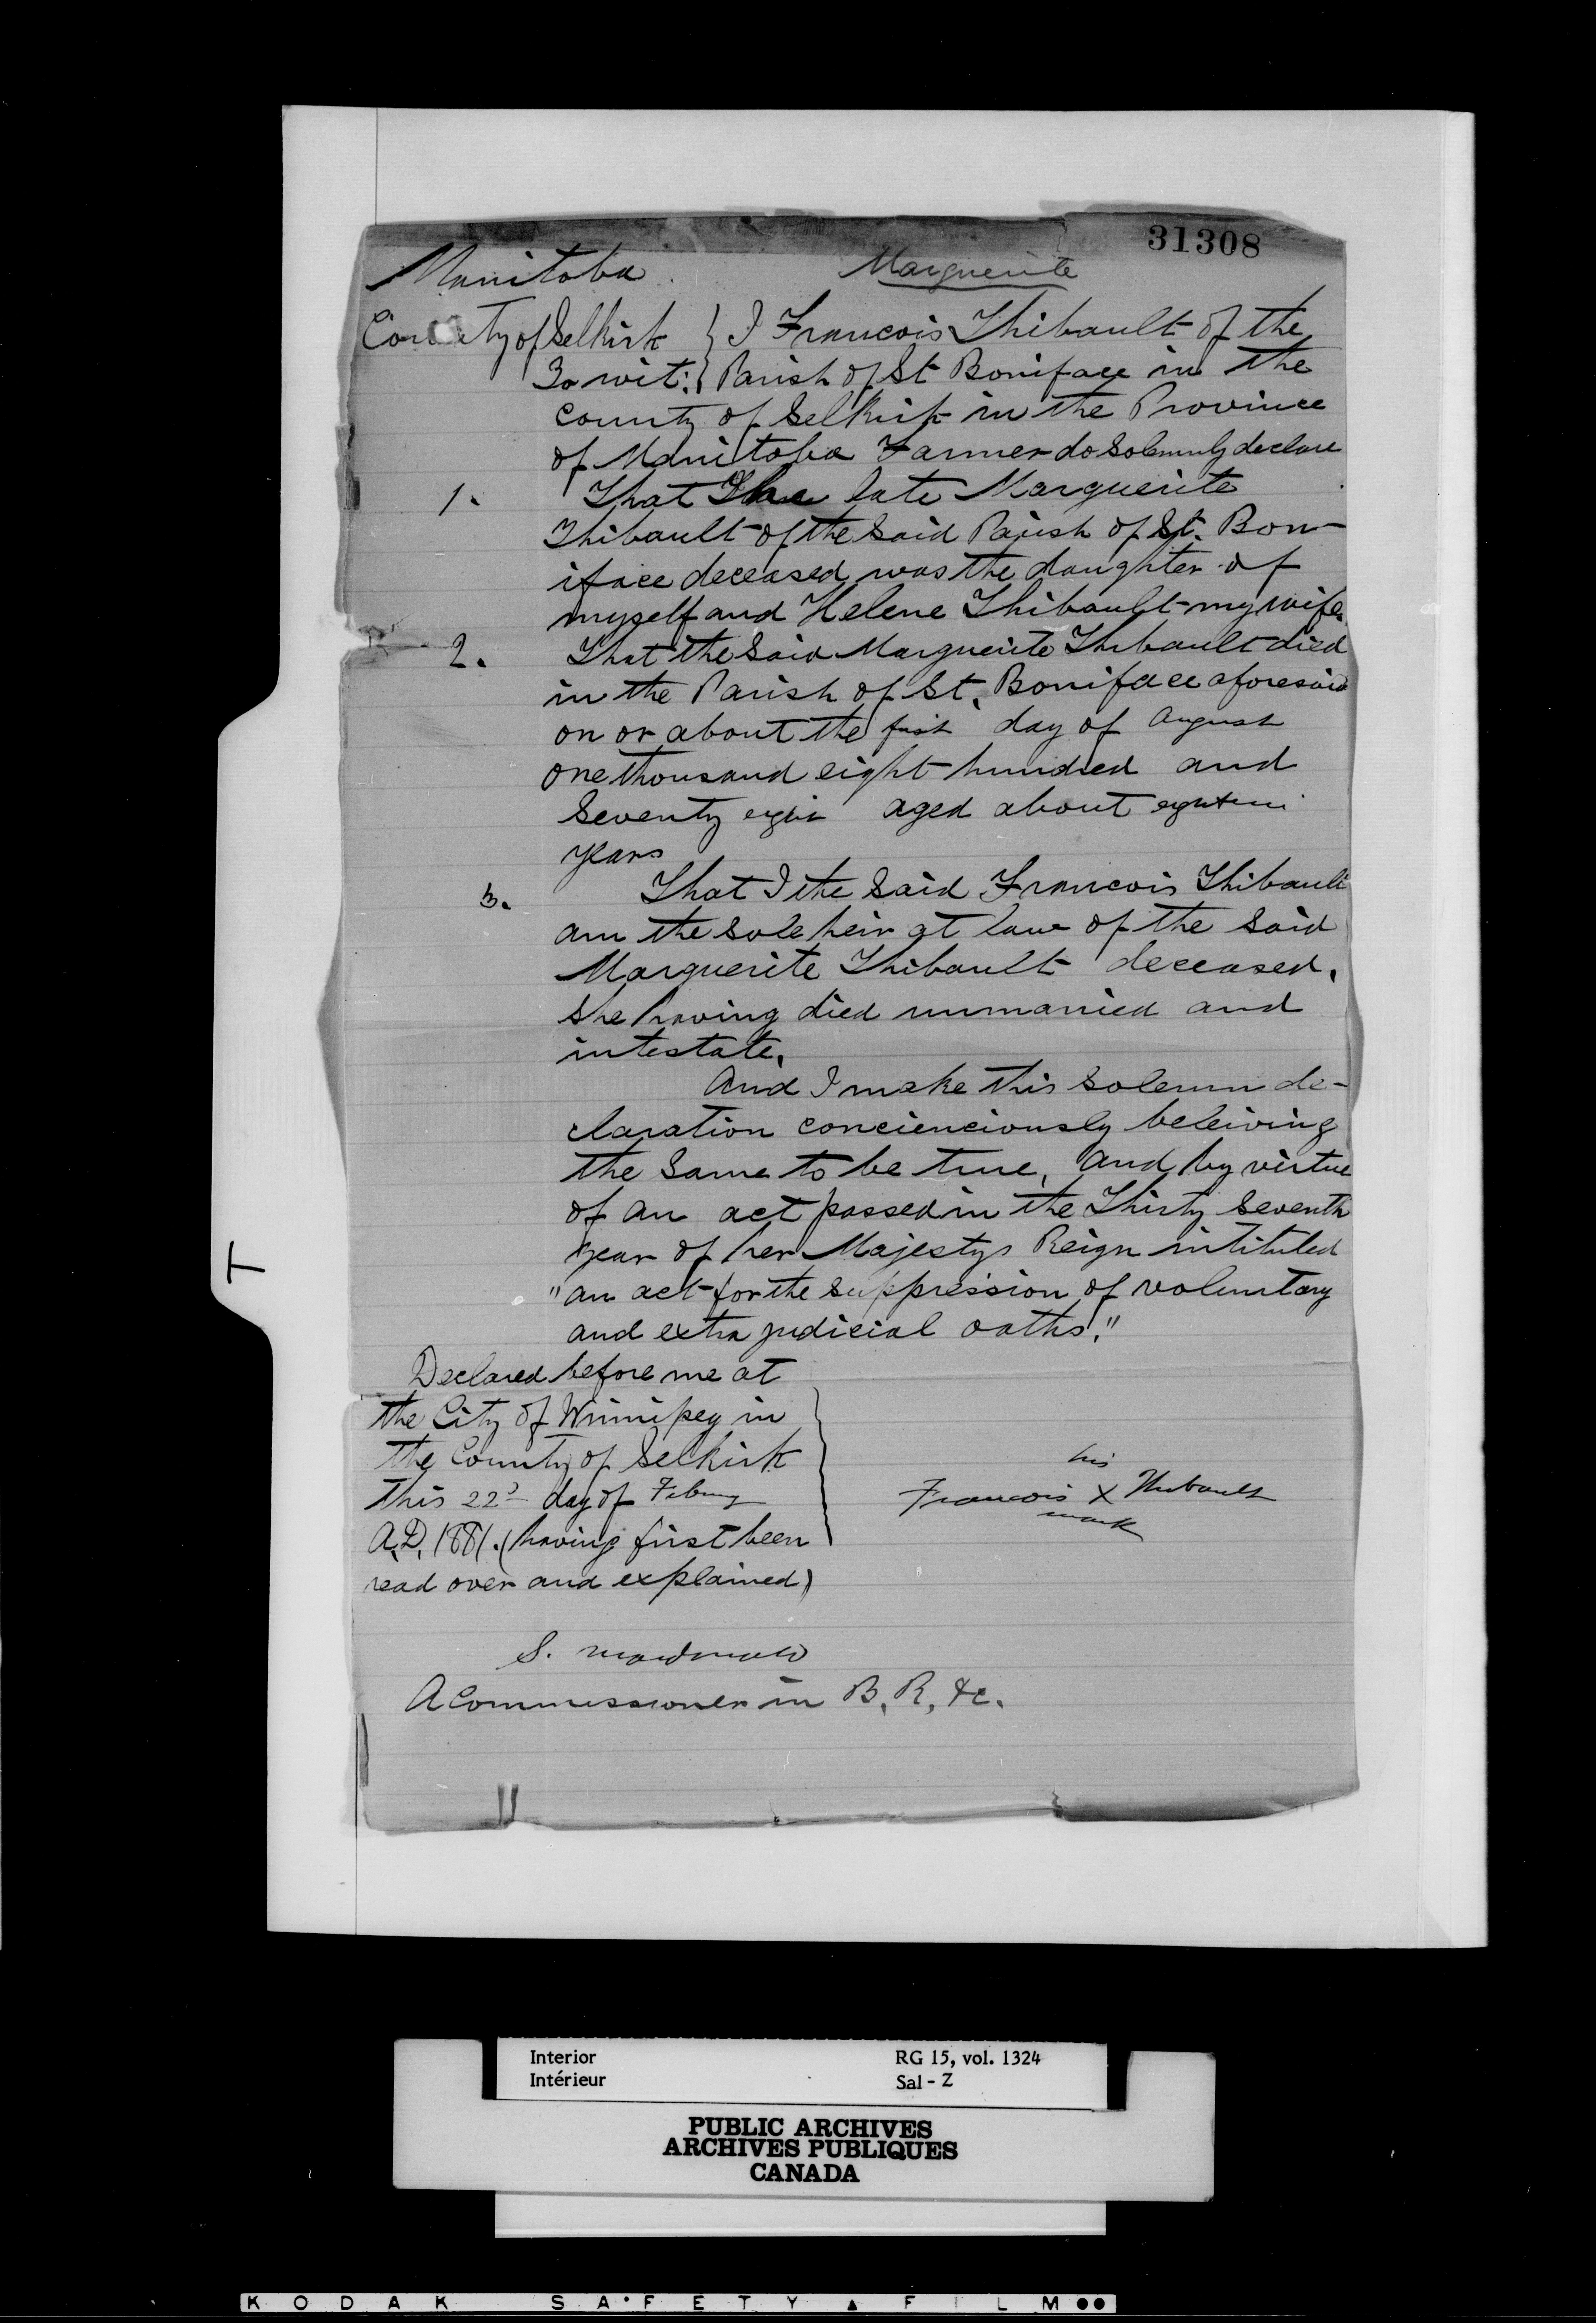 31308
Manitoba
Marguerite
County of Selkirk } I Francois Thibault of the
To wit: } Parish of St Boniface in the
county of Selkirk in the Province
of Manitoba Farmer do Solemnly declare
1. That The late Marguerite
Thibault of the said Parish of St. Bon-
iface deceased was the daughter of
myself and Helene Thibault my wife.
2. That the said Marguerite Thibault died
in the Parish of St. Boniface aforesaid
on or about the first day of August
one thousand eight hundred and
Seventy eight aged about eighteen
years
3. That I the said Francois Thibault
am the sole heir at law of the said
Marguerite Thibault deceased,
she having died unmarried and
intestate.
And I make this solemn de-
claration concienciously beleiving
the same to be true, and by virtue
of an act passed in the Thirty Seventh
year of her Majestys Reign intituled
"an act for the suppression of voluntary
and extra judicial oaths."
Declared before me at
the City of Winnipeg in
the County of Selkirk
this 22d day of Febury
A.D. 1881. (having first been
read over and explained)
his
Francois X Thibault
mark
S. Macdonald
A Commissioner in B. R. &c.
T
Interior
Intérieur
RG 15, vol. 1324
Sal - Z
PUBLIC ARCHIVES
ARCHIVES PUBLIQUES
CANADA
KODAK SAFETY FILM